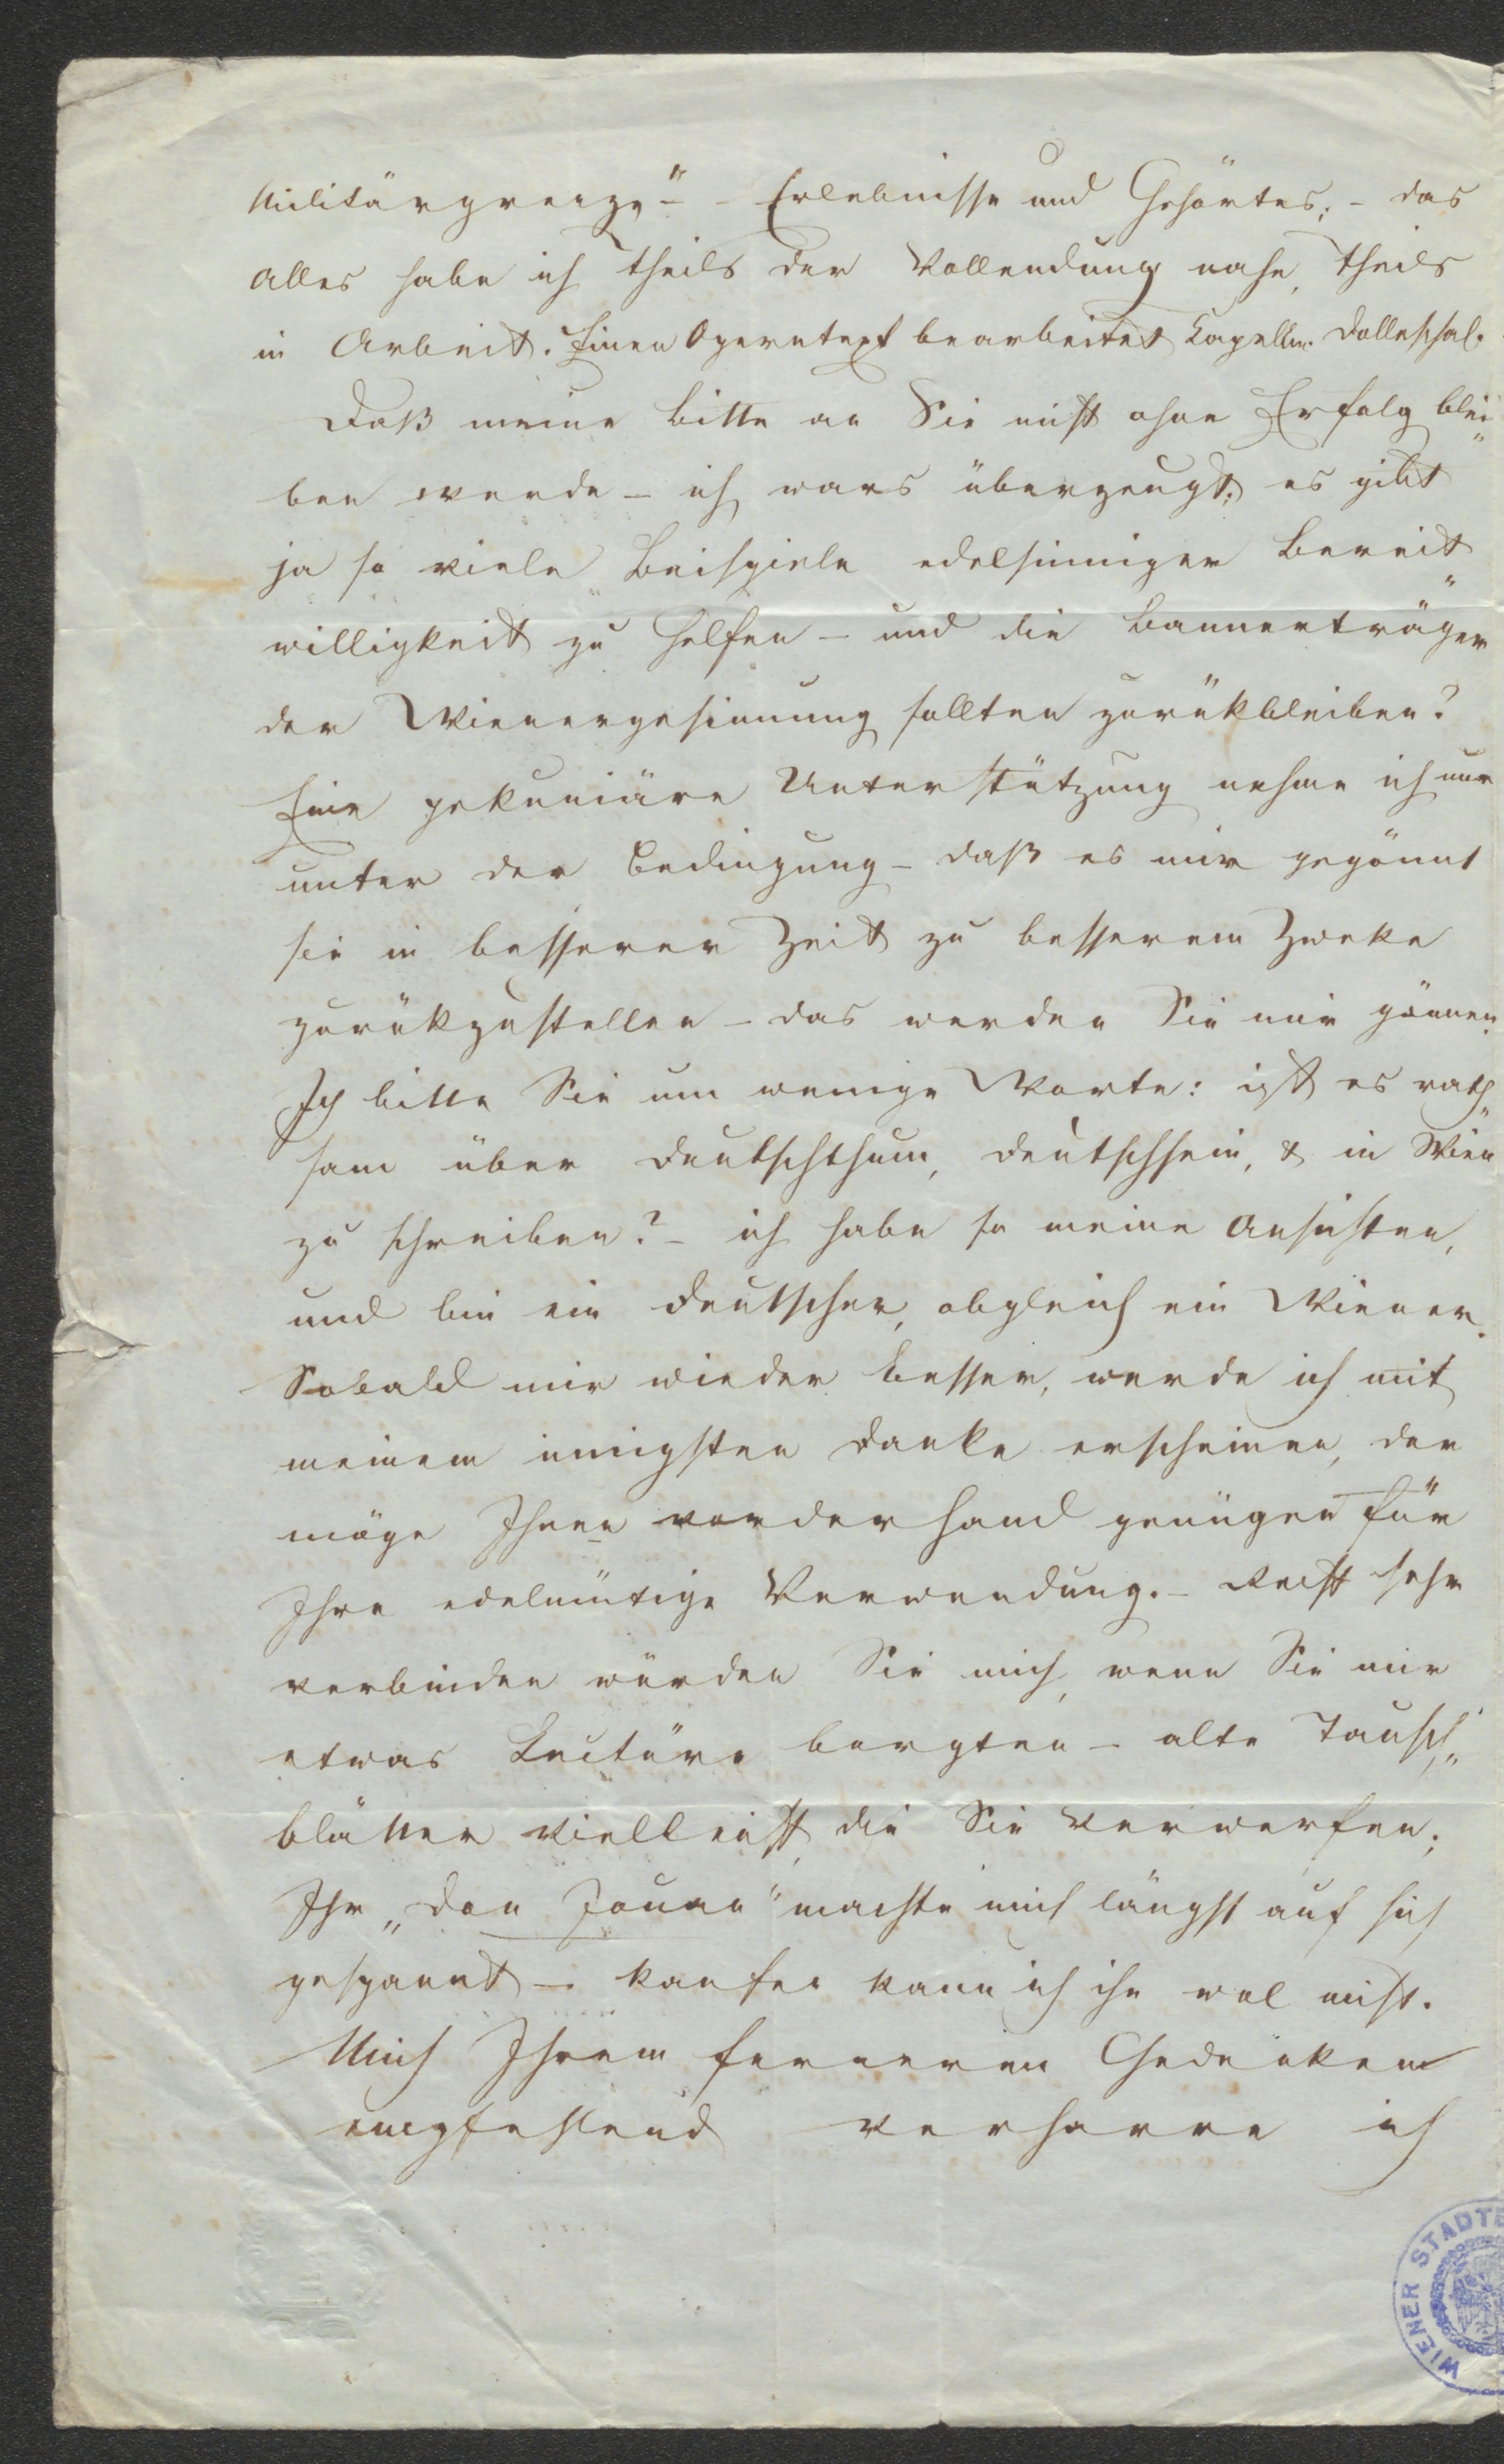 Militärgrenze“ – Erlebnisse und Gehörtes; – das
alles habe ich theils der Vollendung nahe, theils
in Arbeit. Einen Operntext bearbeitet Kapellm. Dolleschal.
Daß meine Bitte an Sie nicht ohne Erfolg blei„
ben werde – ich wars überzeugt; es gibt
ja so viele Beispiele edelsinniger Bereit„
willigkeit zu helfen – und die Bannerträger
der Wienergesinnung sollten zurükbleiben?
Eine pekuniäre Unterstützung nehme ich nur
unter der Bedingung – daß es mir gegönnt
sei in besserer Zeit zu besserem Zweke
zurükzustellen – das werden Sie mir gönnen.
Ich bitte Sie um wenige Worte: ist es rath„
sam über Deutschthum, Deutschsein, & in Wien
zu schreiben? – ich habe so meine Ansichten,
und bin ein Deutscher, obgleich ein Wiener.
Sobald mir wieder besser, werde ich mit
meinem innigsten Danke erscheinen, der
möge Ihnen vorderhand genügen für
Ihre edelmütige Verwendung. – Recht sehr
verbinden würden Sie mich, wenn Sie mir
etwas Lectüre borgten – alte Tausch„
blätter vielleicht, die Sie verwerfen;
Ihr „Don Jouan“ machte mich längst auf sich
gespannt – kaufen kann ich ihn wol nicht.
Mich Ihrem ferneren Gedenken
empfehlend verharre ich
WIENER STADT